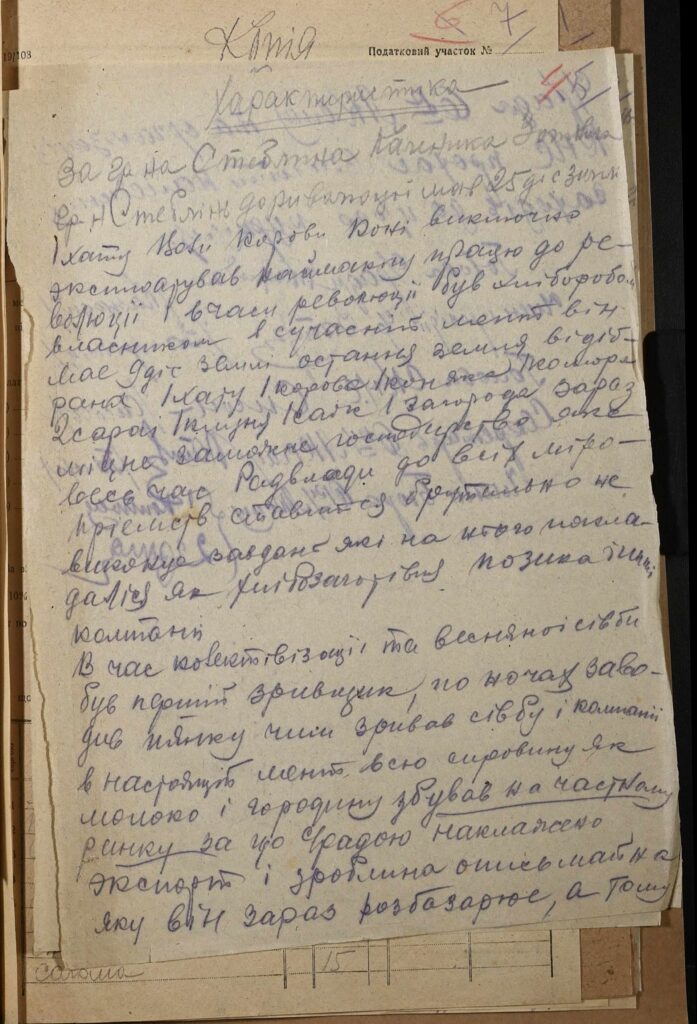 Копія
Податковий участок №
6 7
Характеристика
4 5
За гр-на Стебліна
гр-н Стеблінь до революції мав 25 дес землі
1 хату Воли Корови Коні виключно
эксплоатував наймакну працю до ре-
волюції і в часи революції був хліборобом
власником в сучасніт мент він
має 9 дес землі остання земля відіб-
рана 1 хату 1 корова 1 коняка 1 комора
2 сараї 1 клуня 1 саж 1 загорода зараз
міцне заможнє господарство яке
весь час Радвлади до всіх міро-
приємств ставится брутально не
виконує завдань які на нього покла-
далися як хлібозаготівля позика інши
компанії
В час колективізації та весняної сівби
був перший зривщик, по ночах заво-
див пянку чим зривав сівбу і компанії
в настоящий мент всю сировину як
молоко і городину збував на частному
ринку за що с/радою наложено
экспорт і зроблина опись майна
яку він зараз розбазарює, а тому
солома 15